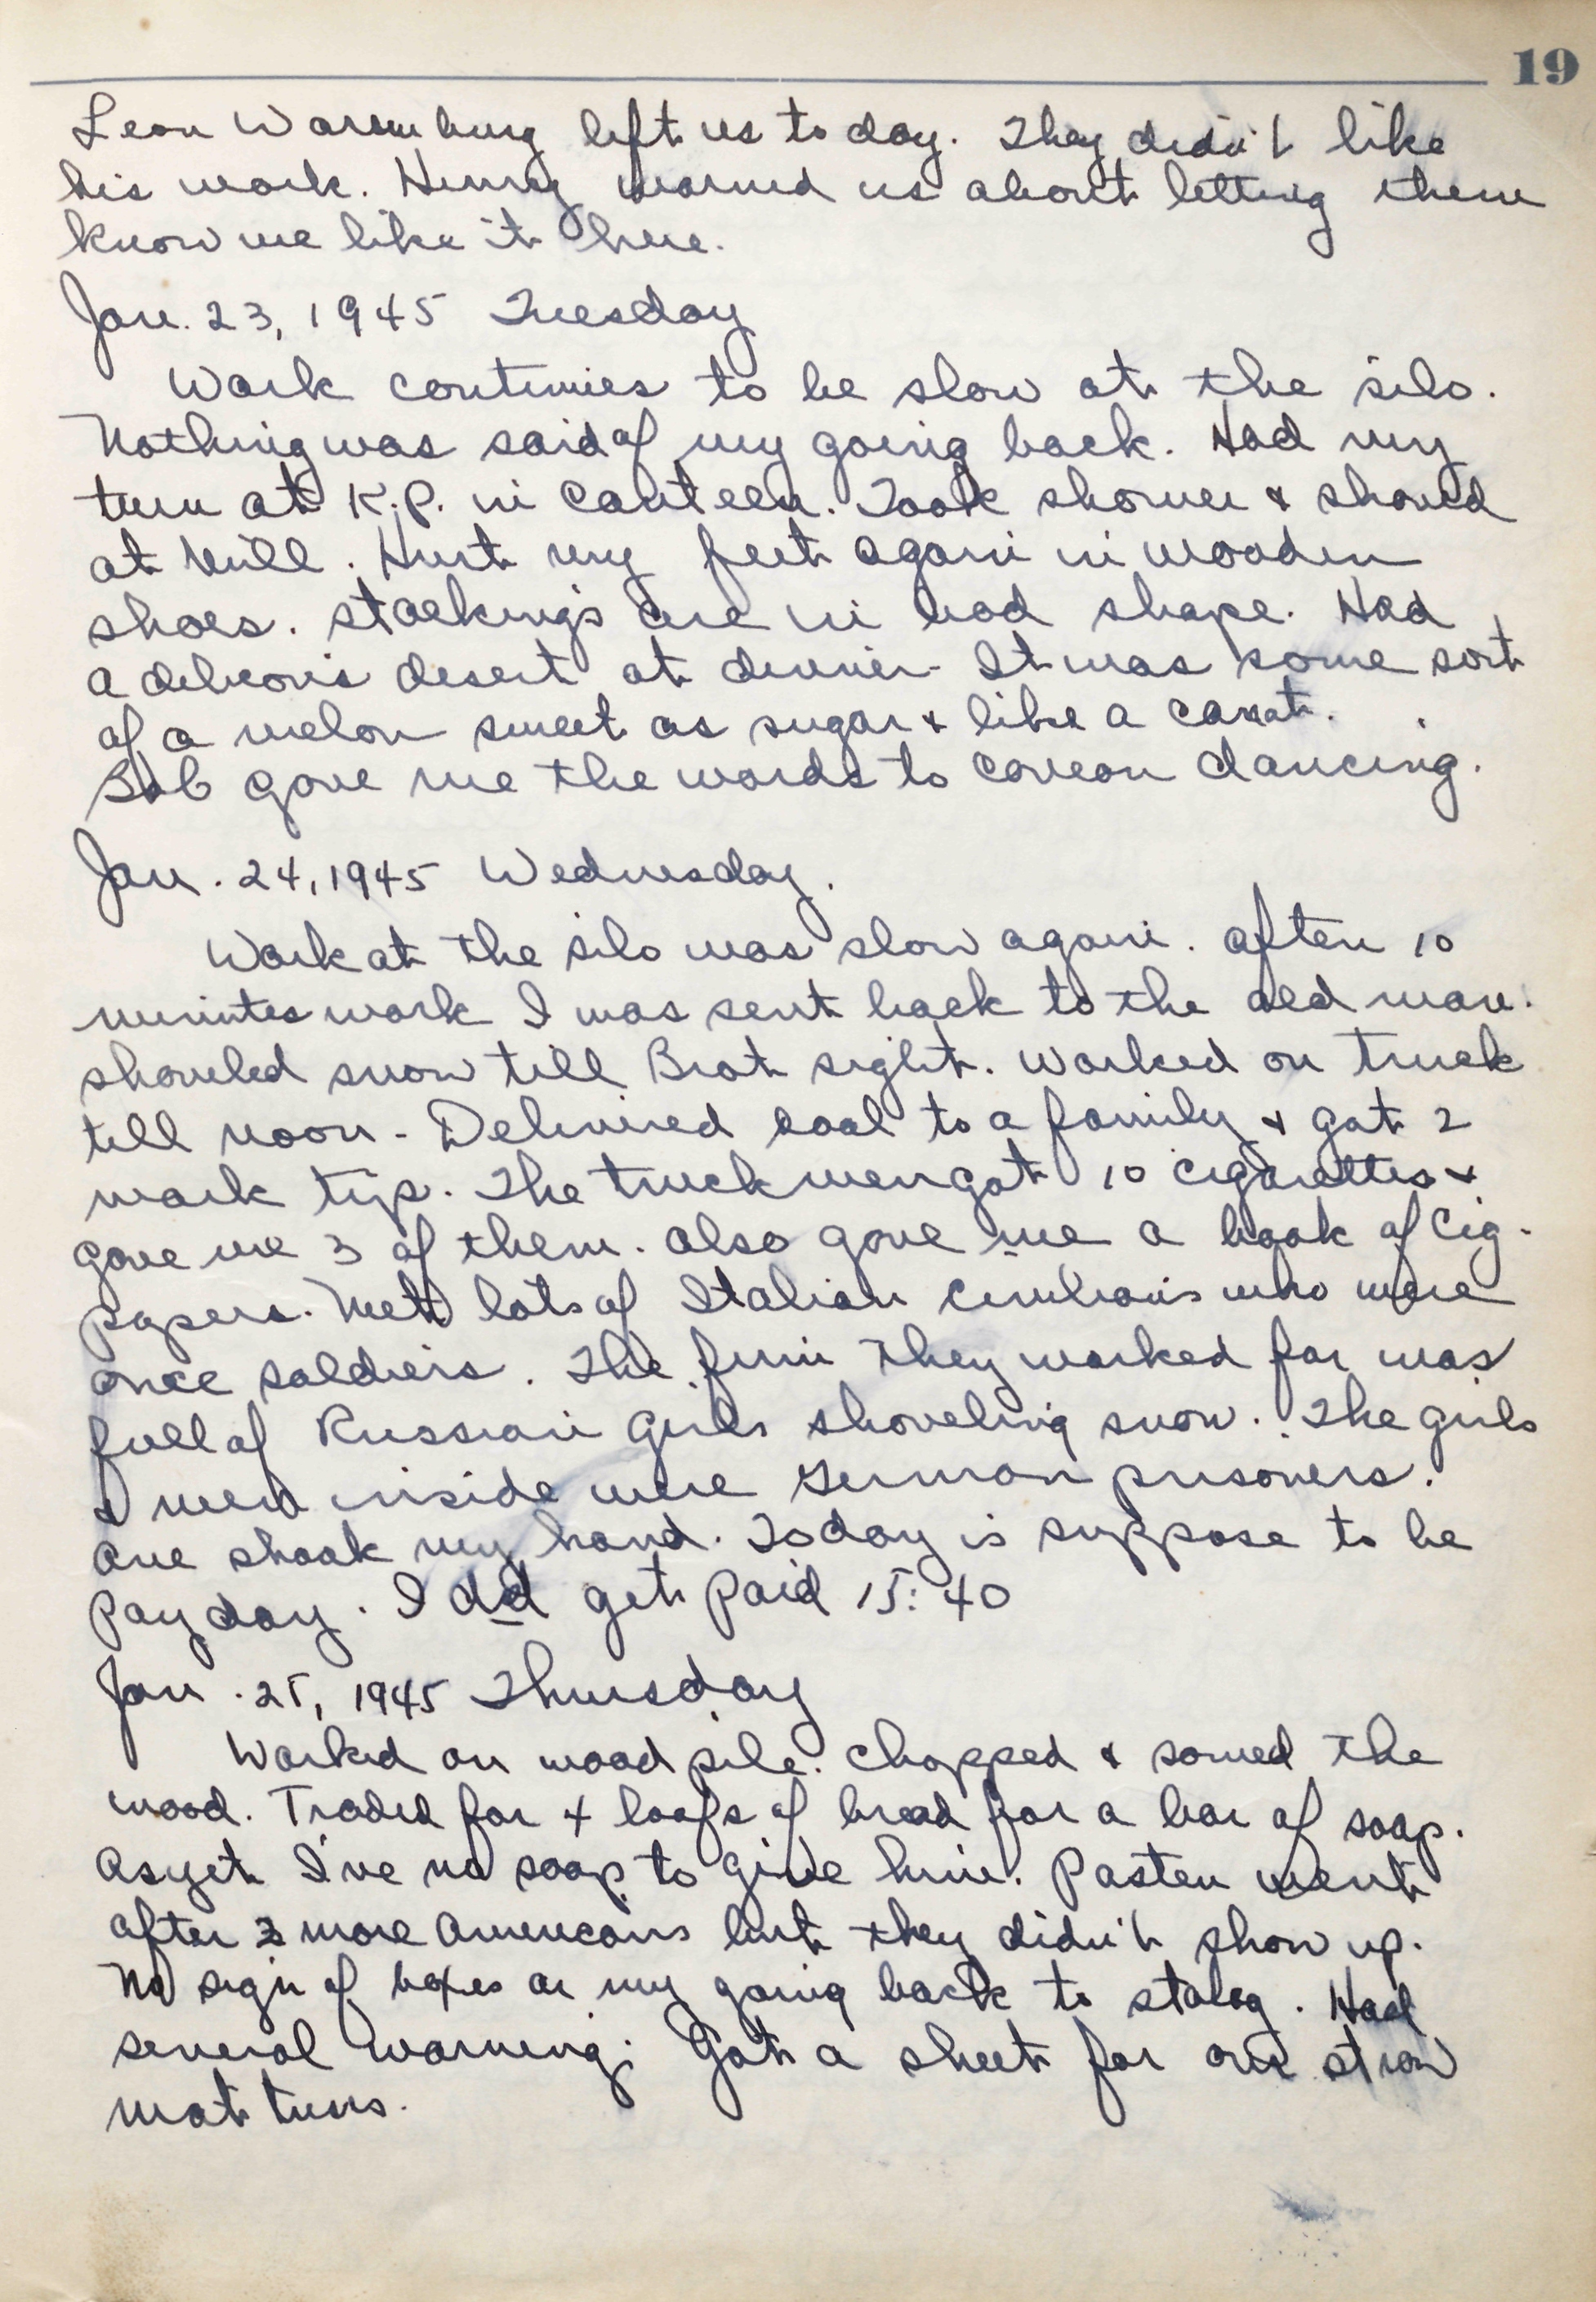 19
Leon Warmburg left us today. They didn't like
his work. Henry warned us about letting them
know we like it here.
Jan. 23, 1945 Tuesday
Work continues to be slow at the silo.
Nothing was said of my going back. Had my
turn at K.P. in canteen. Took shower & shaved
at Mill. Hurt my feet again in wooden
shoes. Stockings are in bad shape. Had
a delicous desert at dinner. It was some sort
of a melon sweet as sugar & like a carrat.
Bob gave me the words to dancing.
Jan. 24, 1945 Wednesday.
Work at the silo was slow again. After 10
minutes work I was sent back to the old man.
Shoveled snow till Brot . Worked on truck
till noon - Delivered coal to a family & got 2
mark tip. The truck men got 10 cigarettes &
gave me 3 of them. Also gave me a book of cig.
papers. Mett lots of Italian civilians who were
once soldiers. The firm they worked for was
full of Russian girls shoveling snow. The girls
& men inside were German prisoners.
One shook my hand. Today is suppose to be
payday. I did get paid 15:40
Jan. 25, 1945 Thursday
Worked on wood pile. Chopped & sawed the
wood. Traded for 4 loafs of bread for a bar of soap.
As yet I've no soap to give him. Posten went
after 3 more Americans but they didn't show up.
No sign of boxes or my going back to stalag. Had
several warning; Got a sheet for our straw
mattress.